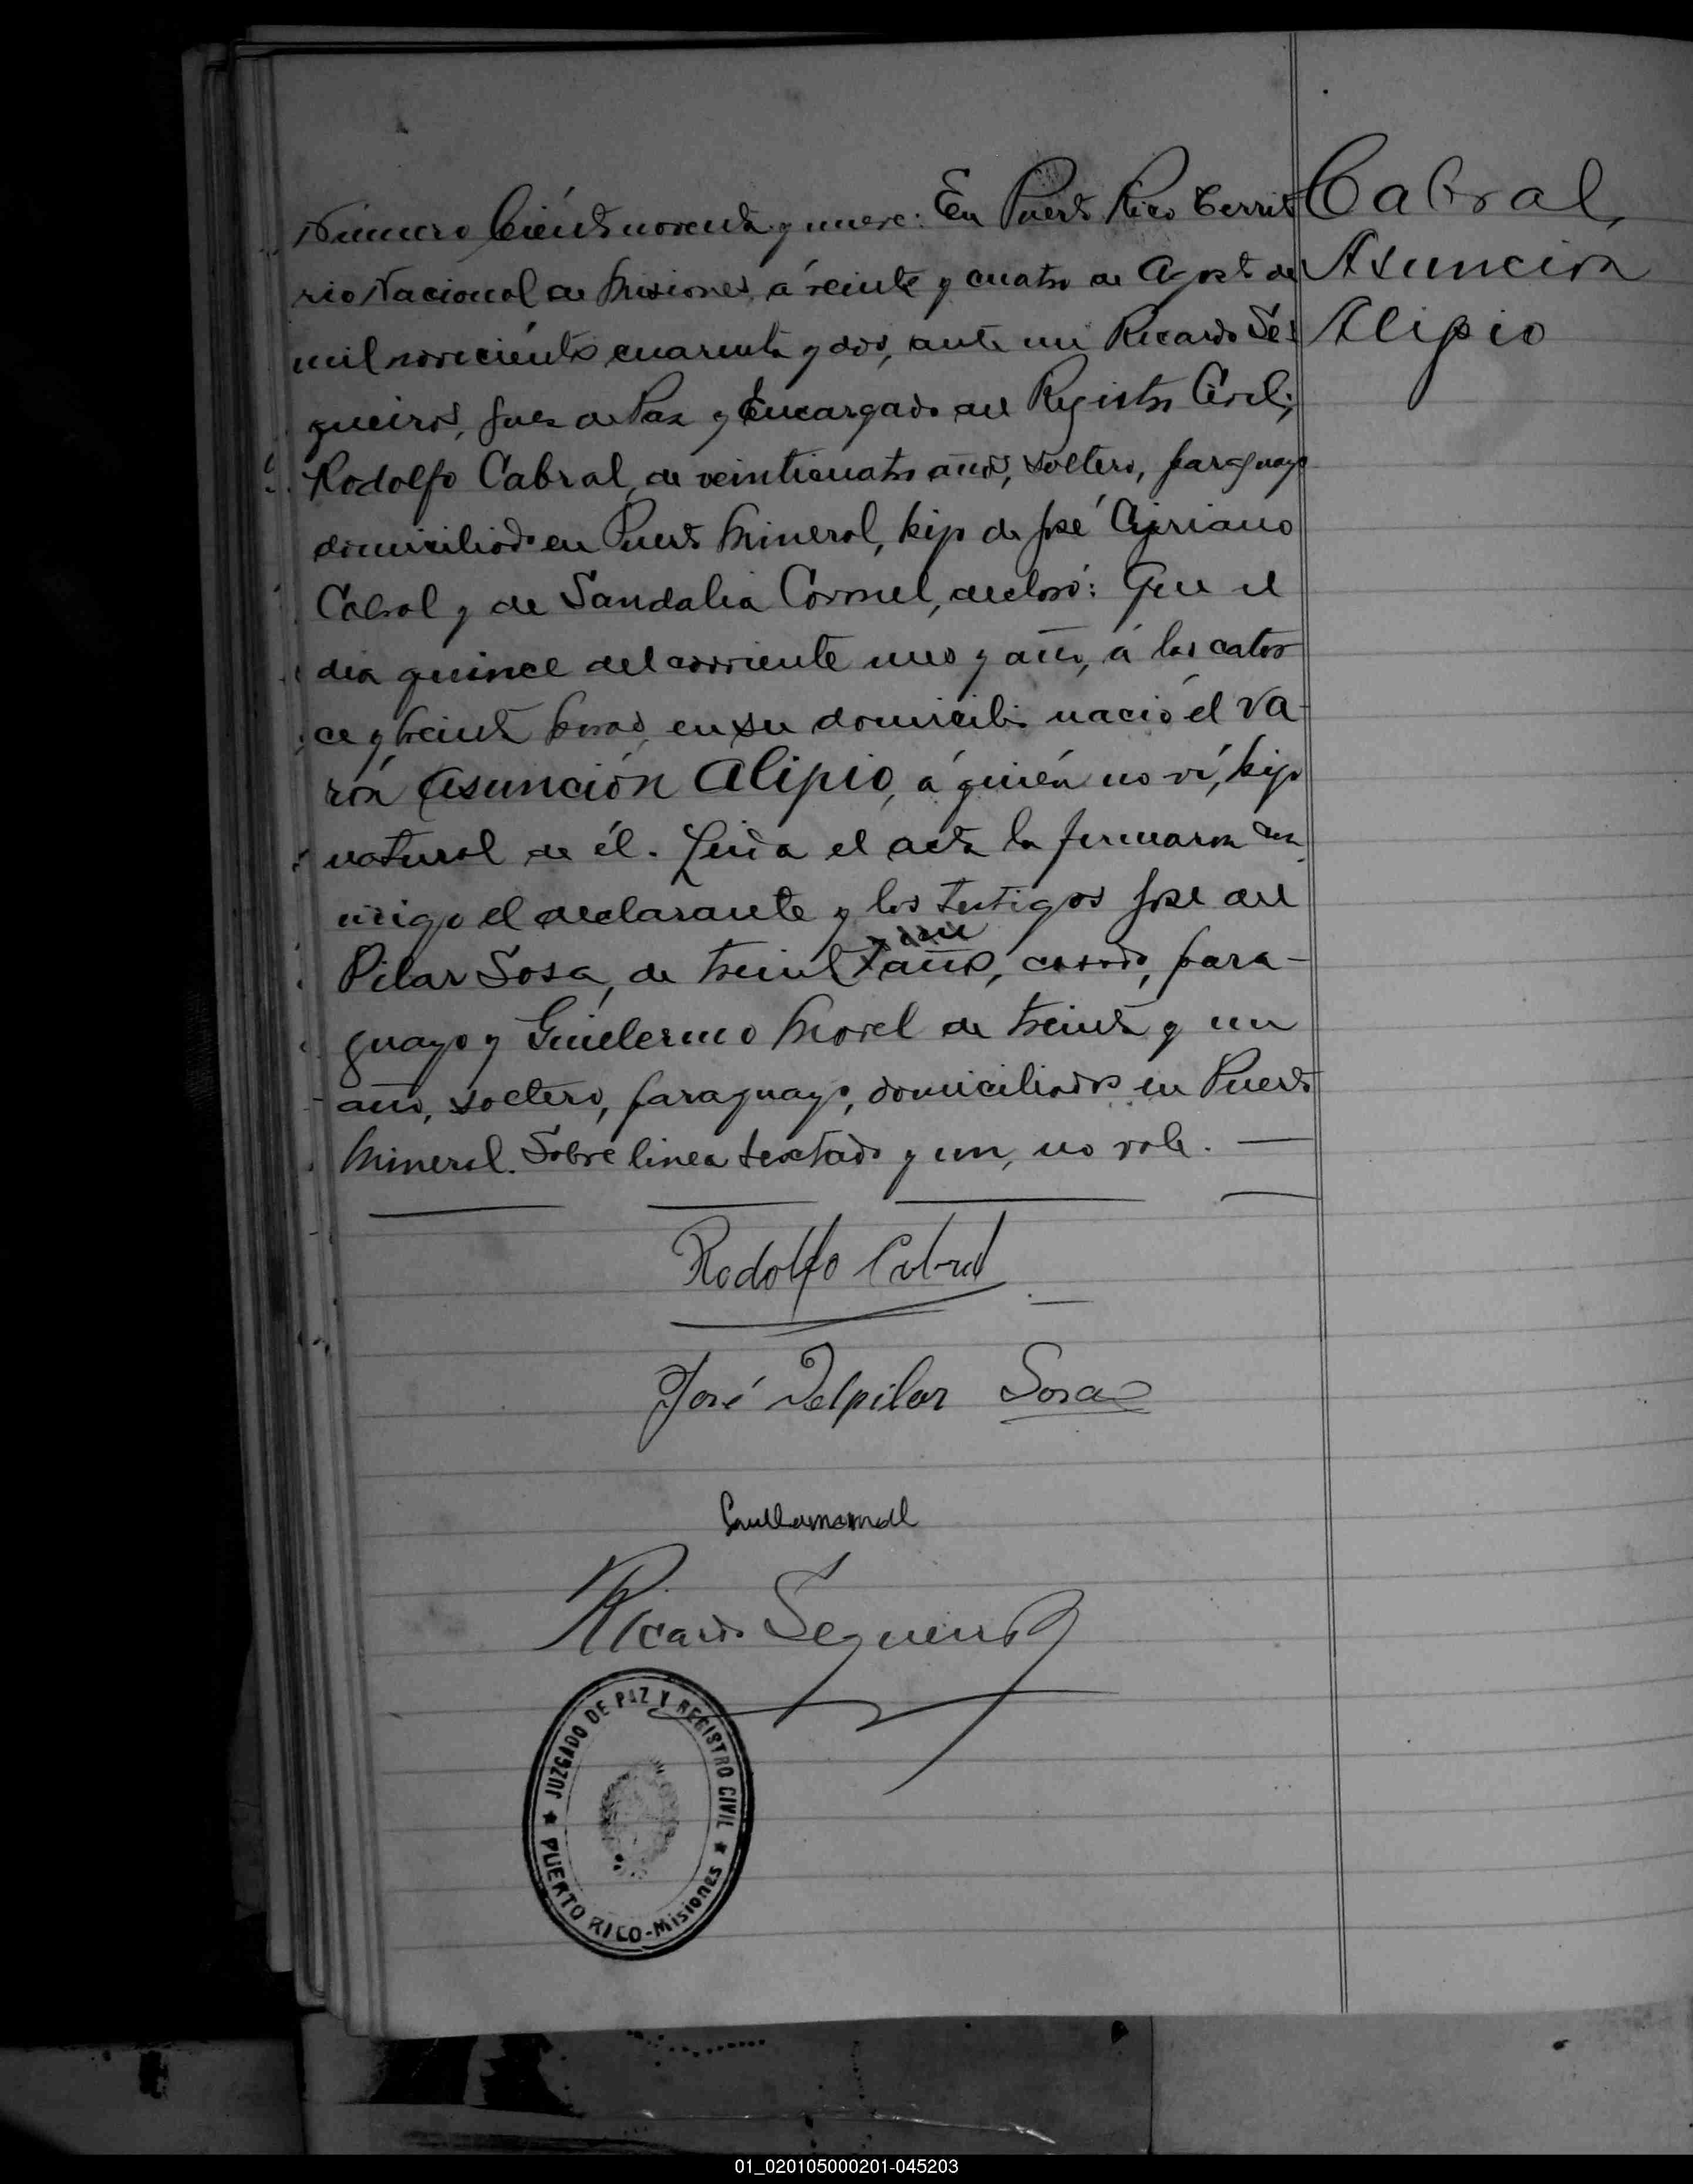 Número Ciento noventa y nueve: En Puerto Rico Territo
Cabral,
rio Nacional de Misiones, á veinte y cuatro de Agosto de
Asunción
mil novecientos cuarenta y dos, ante mi Ricardo Se-
Alipio
gueiros, Juez de Paz y Encargado del Registro Civil;
Rodolfo Cabral, de veinticuatro años, soltero, paraguayo
domiciliado en Puerto Mineral, hijo de José Cipriano
Cabral y de Sandalia Coronel, declaró: Que el
dia quince del corriente mes y año, á las cator
ce y treinta horas, en su domicilio nació el va-
rón Asunción Alipio, á quién no ví, hijo
natural de él. Leida el acta la firmaron con
migo el declarante y los testigos José del
Pilar Sosa, de treinta años, casado, para-
guayo y Guillermo Morel de treinta y un
año, soltero, paraguayo, domiciliados en Puerto
Mineral. Sobre linea testado y un, no vale. —
Rodolfo Cabral
José Delpilar Sosa
Ricardo Segueiros
JUZGADO DE PAZ Y REGISTRO CIVIL
★ PUERTO RICO-Misiones ★
01_020105000201-045203